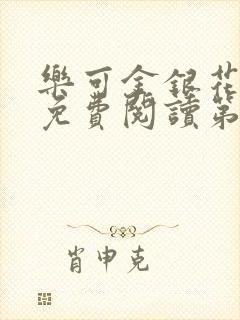 樂可金銀花
免費閱讀第
肖申克